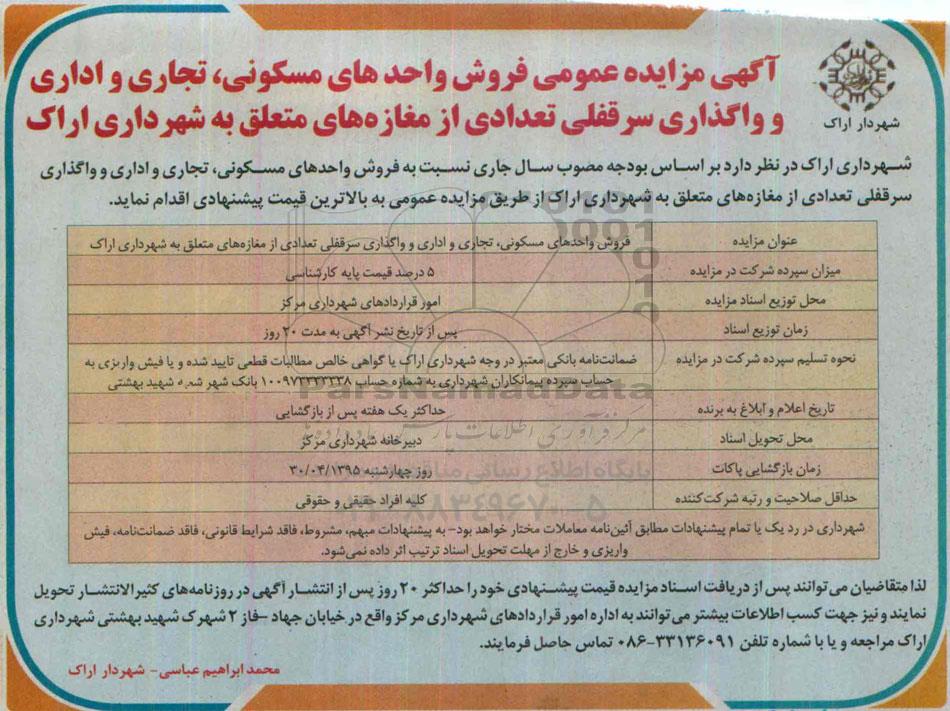 آگهی مزایده عمومی فروش واحد های مسکونی، تجاری و اداری
و واگذاری سرقفلی تعدادی از مغازه‌های متعلق به شهرداری اراک
شهردار اراک
شهرداری اراک در نظر دارد بر اساس بودجه مصوب سال جاری نسبت به فروش واحدهای مسکونی، تجاری و اداری و واگذاری
سرقفلی تعدادی از مغازه‌های متعلق به شهرداری اراک از طریق مزایده عمومی به بالاترین قیمت پیشنهادی اقدام نماید.
عنوان مزایده فروش واحدهای مسکونی، تجاری و اداری و واگذاری سرقفلی تعدادی از مغازه‌های متعلق به شهرداری اراک
میزان سپرده شرکت در مزایده ۵ درصد قیمت پایه کارشناسی
محل توزیع اسناد مزایده امور قراردادهای شهرداری مرکز
زمان توزیع اسناد پس از تاریخ نشر آگهی به مدت ۲۰ روز
نحوه تسلیم سپرده شرکت در مزایده ضمانت‌نامه بانکی معتبر در وجه شهرداری اراک یا گواهی خالص مطالبات قطعی تایید شده و یا فیش واریزی به
حساب سپرده پیمانکاران شهرداری به شماره حساب ۱۰۰۹۷۳۳۳۳۳۳۸ بانک شهر شعبه شهید بهشتی
تاریخ اعلام و ابلاغ به برنده حداکثر یک هفته پس از بازگشایی
محل تحویل اسناد دبیرخانه شهرداری مرکز
زمان بازگشایی پاکات روز چهارشنبه ۳۰/۰۴/۱۳۹۵
حداقل صلاحیت و رتبه شرکت‌کننده کلیه افراد حقیقی و حقوقی
شهرداری در رد یک یا تمام پیشنهادات مطابق آئین‌نامه معاملات مختار خواهد بود- به پیشنهادات مبهم، مشروط، فاقد شرایط قانونی، فاقد ضمانت‌نامه، فیش
واریزی و خارج از مهلت تحویل اسناد ترتیب اثر داده نمی‌شود.
لذا متقاضیان می‌توانند پس از دریافت اسناد مزایده قیمت پیشنهادی خود را حداکثر ۲۰ روز پس از انتشار آگهی در روزنامه‌های کثیرالانتشار تحویل
نمایند و نیز جهت کسب اطلاعات بیشتر می‌توانند به اداره امور قراردادهای شهرداری مرکز واقع در خیابان جهاد -فاز ۲ شهرک شهید بهشتی شهرداری
اراک مراجعه و یا با شماره تلفن ۳۳۱۳۶۰۹۱-۰۸۶ تماس حاصل فرمایند.
محمد ابراهیم عباسی- شهردار اراک
ParsNamadData
پایگاه اطلاع رسانی